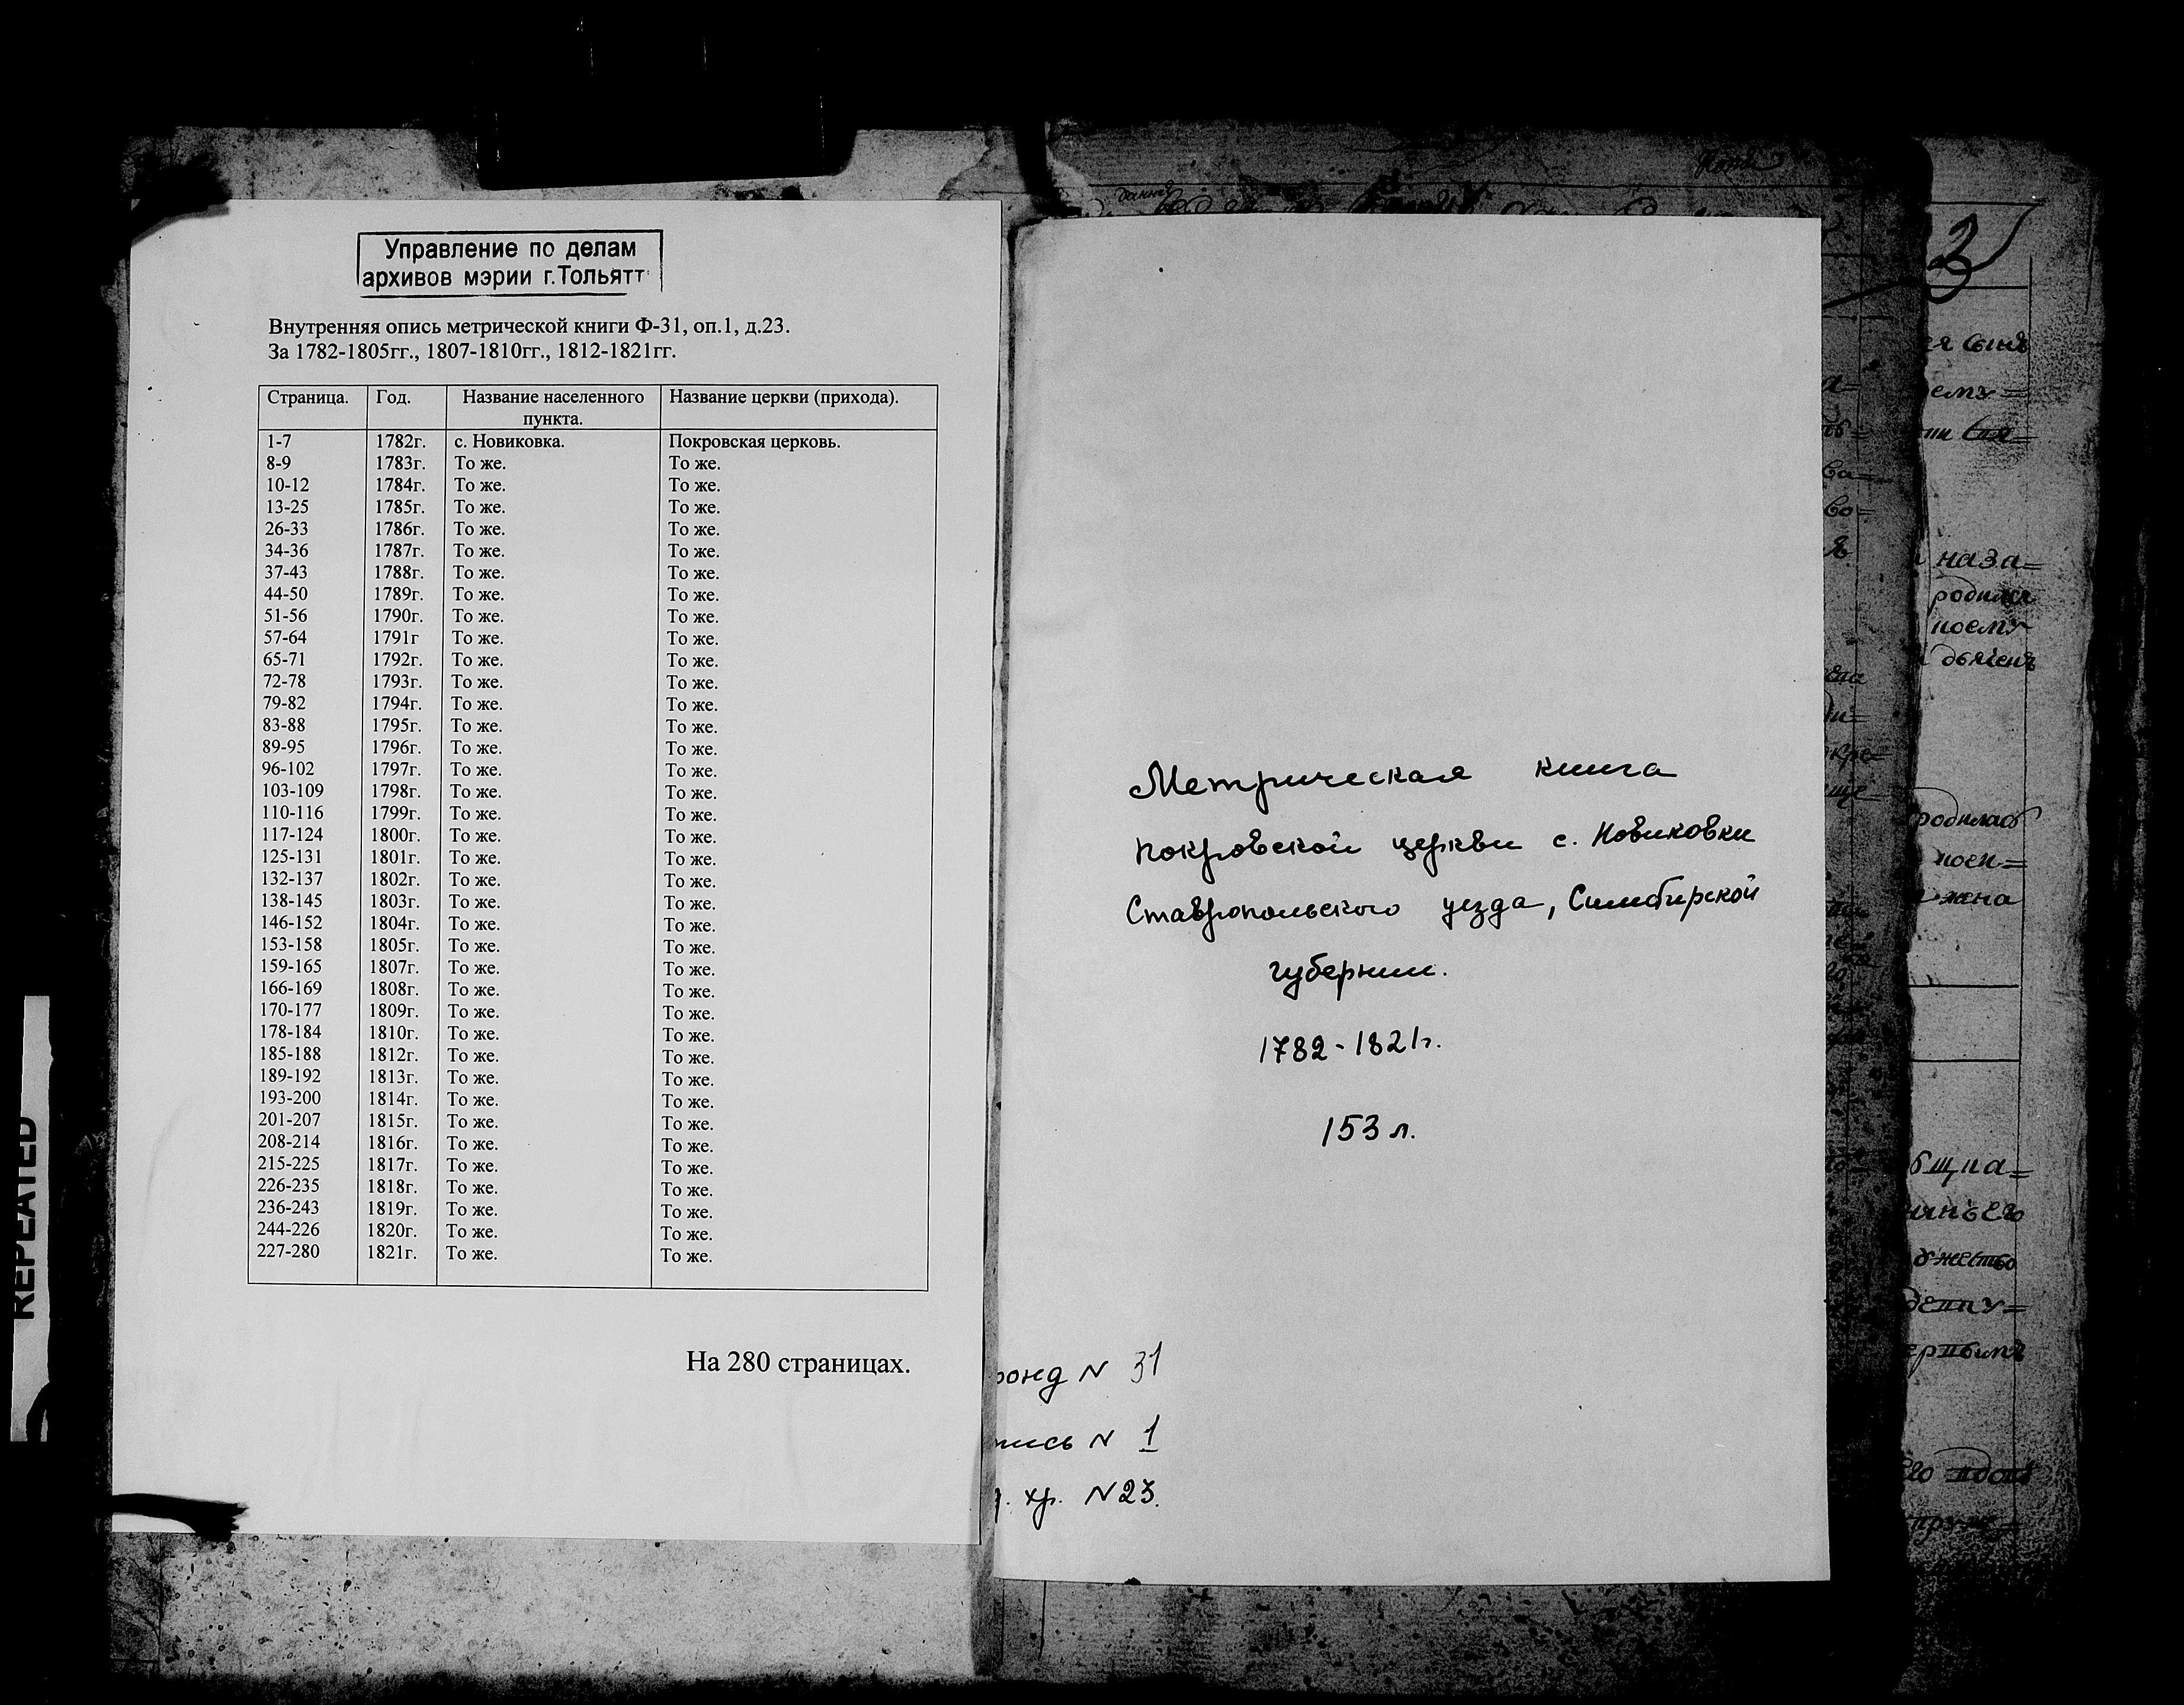 Управление по делам
архивов мэрии г.Тольятт
Внутренняя опись метрической книги Ф-31, оп.1, д.23.
За 1782-1805гг., 1807-1810гг., 1812-1821гг.
Страница. Год. Название населенного пункта. Название церкви (прихода).
1-7 1782г. с. Новиковка. Покровская церковь.
8-9 1783г. То же. То же.
10-12 1784г. То же. То же.
13-25 1785г. То же. То же.
26-33 1786г. То же. То же.
34-36 1787г. То же. То же.
37-43 1788г. То же. То же.
44-50 1789г. То же. То же.
51-56 1790г. То же. То же.
57-64 1791г То же. То же.
65-71 1792г. То же. То же.
72-78 1793г. То же. То же.
79-82 1794г. То же. То же.
83-88 1795г. То же. То же.
89-95 1796г. То же. То же.
96-102 1797г. То же. То же.
103-109 1798г. То же. То же.
110-116 1799г. То же. То же.
117-124 1800г. То же. То же.
125-131 1801г. То же. То же.
132-137 1802г. То же. То же.
138-145 1803г. То же. То же.
146-152 1804г. То же. То же.
153-158 1805г. То же. То же.
159-165 1807г. То же. То же.
166-169 1808г. То же. То же.
170-177 1809г. То же. То же.
178-184 1810г. То же. То же.
185-188 1812г. То же. То же.
189-192 1813г. То же. То же.
193-200 1814г. То же. То же.
201-207 1815г. То же. То же.
208-214 1816г. То же. То же.
215-225 1817г. То же. То же.
226-235 1818г. То же. То же.
236-243 1819г. То же. То же.
244-226 1820г. То же. То же.
227-280 1821г. То же. То же.
На 280 страницах.
REPEATED
Метрическая книга
покровской церкви с. Новиковки
Ставропольского уезда, Симбирской
губернии.
1782-1821г.
153 л.
онд N 31
пись N 1
. хр. N23.